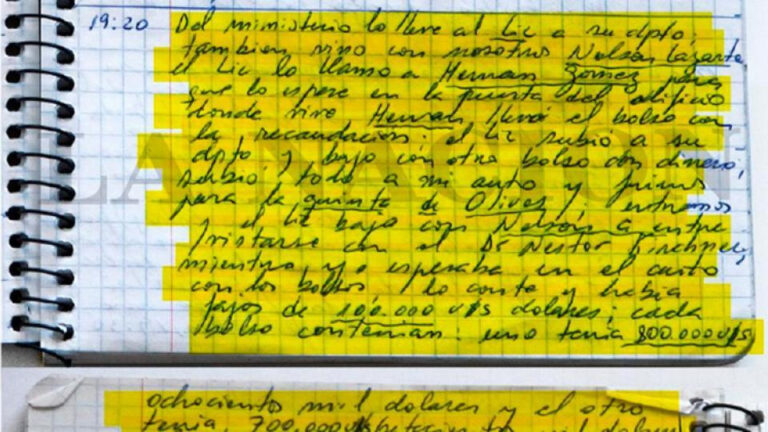 19:20 Del ministerio lo lleve al Lic a su dpto,
tambien vino con nosotros Nelson Lazarte
el Lic lo llamo a Hernan Gomez para
que lo espere en la puerta del edificio
donde vive Hernan llevó el bolso con
la recaudacion; el Lic subió a su
dpto y bajo con otro bolso con dinero,
subió todo a mi auto y fuimos
para la quinta de Olivos; entramos
y el Lic bajo con Nelson a entre
vistarse con el Dr Nestor Kirchner,
mientras yo esperaba en el auto
con los bolsos, lo conte y habia
fajos de 100.000 U$S dolares; cada
bolso contenian: uno tenia 800.000 U$S
ochocientos mil dolares y el otro
tenia 700.000 U$S setecientos mil dolares
LA NACION